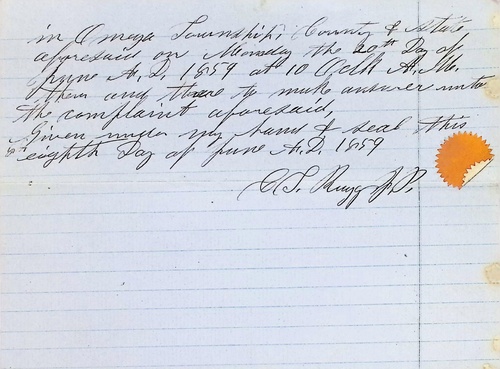 in Omega Township, County & State
aforesaid on Monday the 20th Day of
June A.D. 1859 at 10 Oclk A.M.
then and there to make answer unto
the complaint aforesaid,
Given under my hand & seal this
eighth Day of June A.D. 1859
J.P.